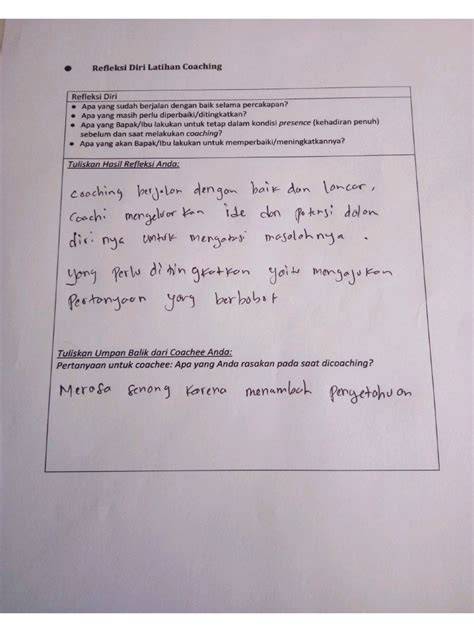 ● Refleksi Diri Latihan Coaching
Refleksi Diri
● Apa yang sudah berjalan dengan baik selama percakapan?
● Apa yang masih perlu diperbaiki/ditingkatkan?
● Apa yang Bapak/Ibu lakukan untuk tetap dalam kondisi presence (kehadiran penuh)
sebelum dan saat melakukan coaching?
● Apa yang akan Bapak/Ibu lakukan untuk memperbaiki/meningkatkannya?
Tuliskan Hasil Refleksi Anda:
Coaching berjalan dengan baik dan lancar,
Coachi mengeluarkan ide dan potensi dalam
diri nya untuk mengatasi masalahnya.
Yang perlu ditingkatkan yaitu mengajukan
Pertanyaan yang berbobot
Tuliskan Umpan Balik dari Coachee Anda:
Pertanyaan untuk coachee: Apa yang Anda rasakan pada saat dicoaching?
Merasa senang karena menambah pengetahuan